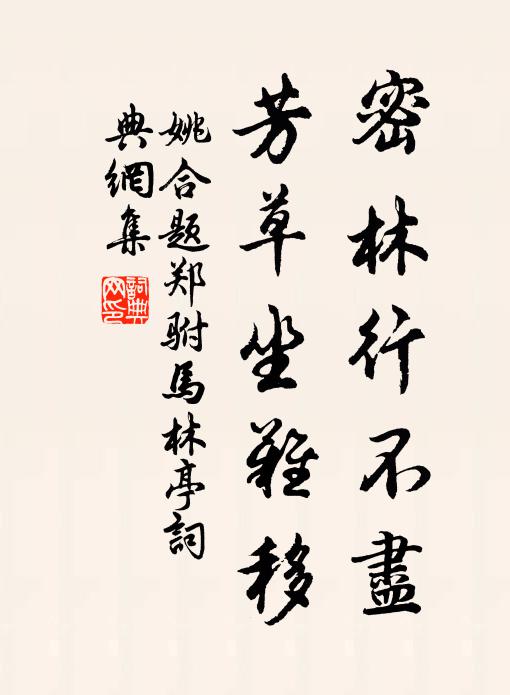 密林行不盡
芳草坐難移
姚合題郑駙馬林亭詞
典網集
詞典
网印